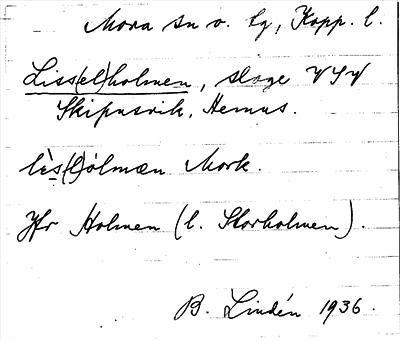 Mora sn o. tg, Kopp. l.
Liss(el)holmen, skoge VSV
Skipnsvik, Hemus.
lès(l)ólmæn Mork.
Jfr Holmen (l. Storholmen).
B. Lindén 1936.